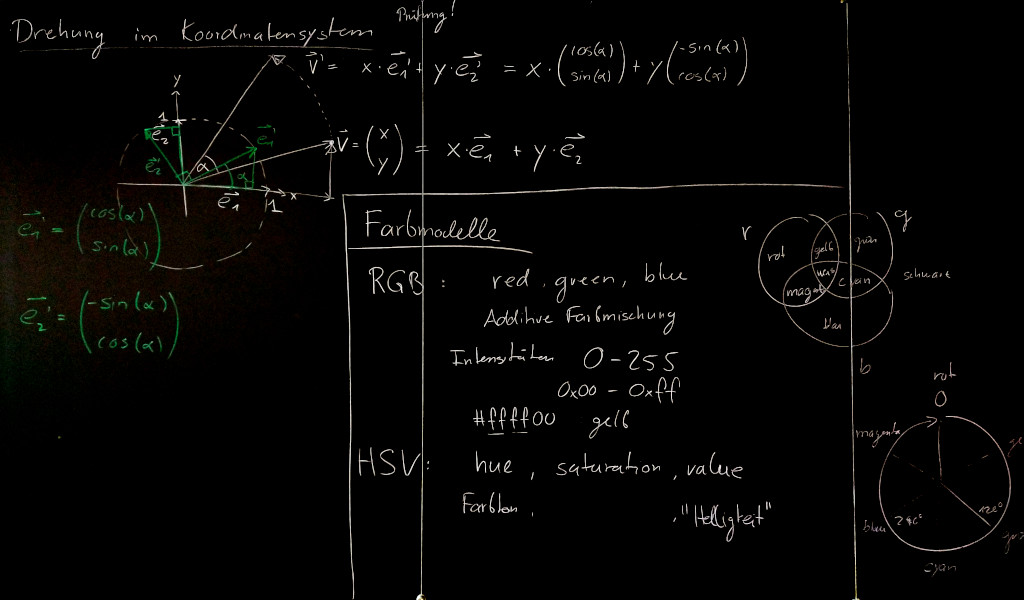 Prüfung!
Drehung im Koordinatensystem
v' = x · e1' + y · e2' = x · (cos(α) sin(α)) + y (-sin(α) cos(α))
y
1
e2
e1'
e2'
α
α
e1
1
x
v = (x y) = x · e1 + y · e2
e1' = (cos(α) sin(α))
e2' = (-sin(α) cos(α))
Farbmodelle
RGB : red, green, blue
Additive Farbmischung
Intensitäten 0-255
0x00 - 0xff
#ffff00 gelb
HSV : hue, saturation, value
Farbton, , "Helligkeit"
r
g
rot
gelb
grün
schwarz
cyan
blau
b
rot
0
magenta
120°
240°
blau
cyan